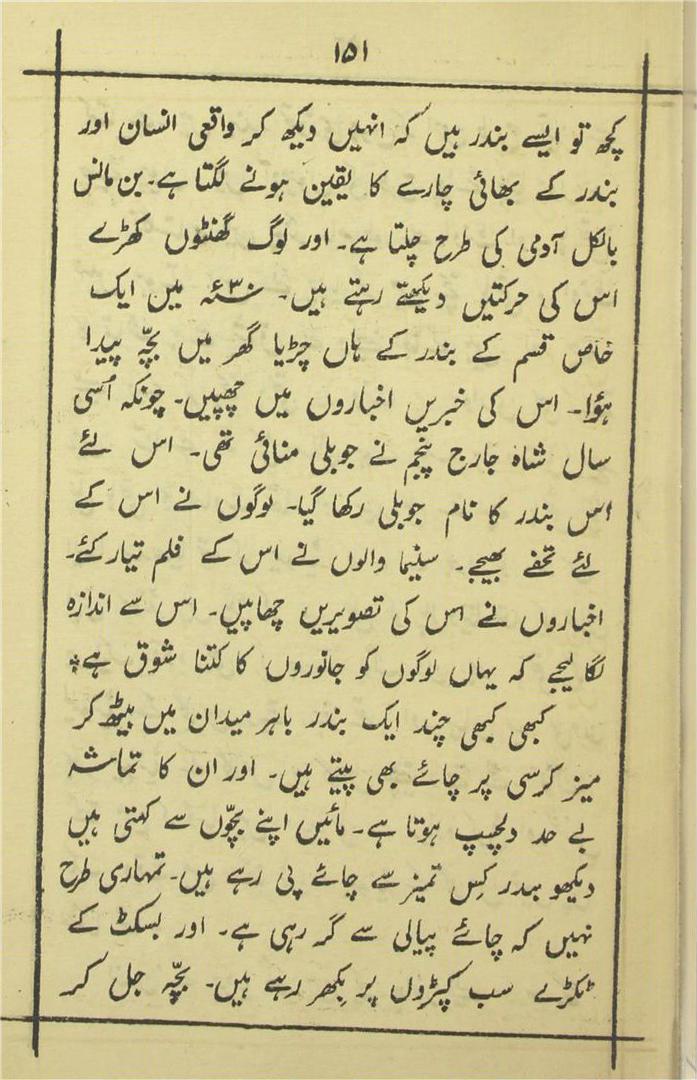 ۱۵۱
کچھ تو ایسے بندر ہیں کہ انہیں دیکھ کر واقعی انسان اور
بندر کے بھائی چارے کا یقین ہونے لگتا ہے۔ بن مانس
بالکل آدمی کی طرح چلتا ہے۔ اور لوگ گھنٹوں کھڑے
اس کی حرکتیں دیکھتے رہتے ہیں۔ میں ایک
خاص قسم کے بندر کے ہاں چڑیا گھر میں بچّہ پیدا
ہؤا۔ اس کی خبریں اخباروں میں چھپیں۔ چونکہ اُسی
سال شاہ جارج پنجم نے جوبلی منائی تھی۔ اس لئے
اس بندر کا نام جوبلی رکھا گیا۔ لوگوں نے اس کے
لئے تحفے بھیجے۔ سنیما والوں نے اس کے فلم تیار کئے۔
اخباروں نے اس کی تصویریں چھاپیں۔ اس سے اندازہ
لگا لیجے کہ یہاں لوگوں کو جانوروں کا کتنا شوق ہے؞
کبھی کبھی چند ایک بندر باہر میدان میں بیٹھ کر
میز کرسی پر چائے بھی پیتے ہیں۔ اور ان کا تماشہ
بے حد دلچسپ ہوتا ہے۔ مائیں اپنے بچّوں سے کہتی ہیں
دیکھو بندر کِس تمیز سے چائے پی رہے ہیں۔ تمہاری طرح
نہیں کہ چائے پیالی سے گر رہی ہے۔ اور بسکٹ کے
ٹکڑے سب کپڑوں پر بکھر رہے ہیں۔ بچّہ جل کر